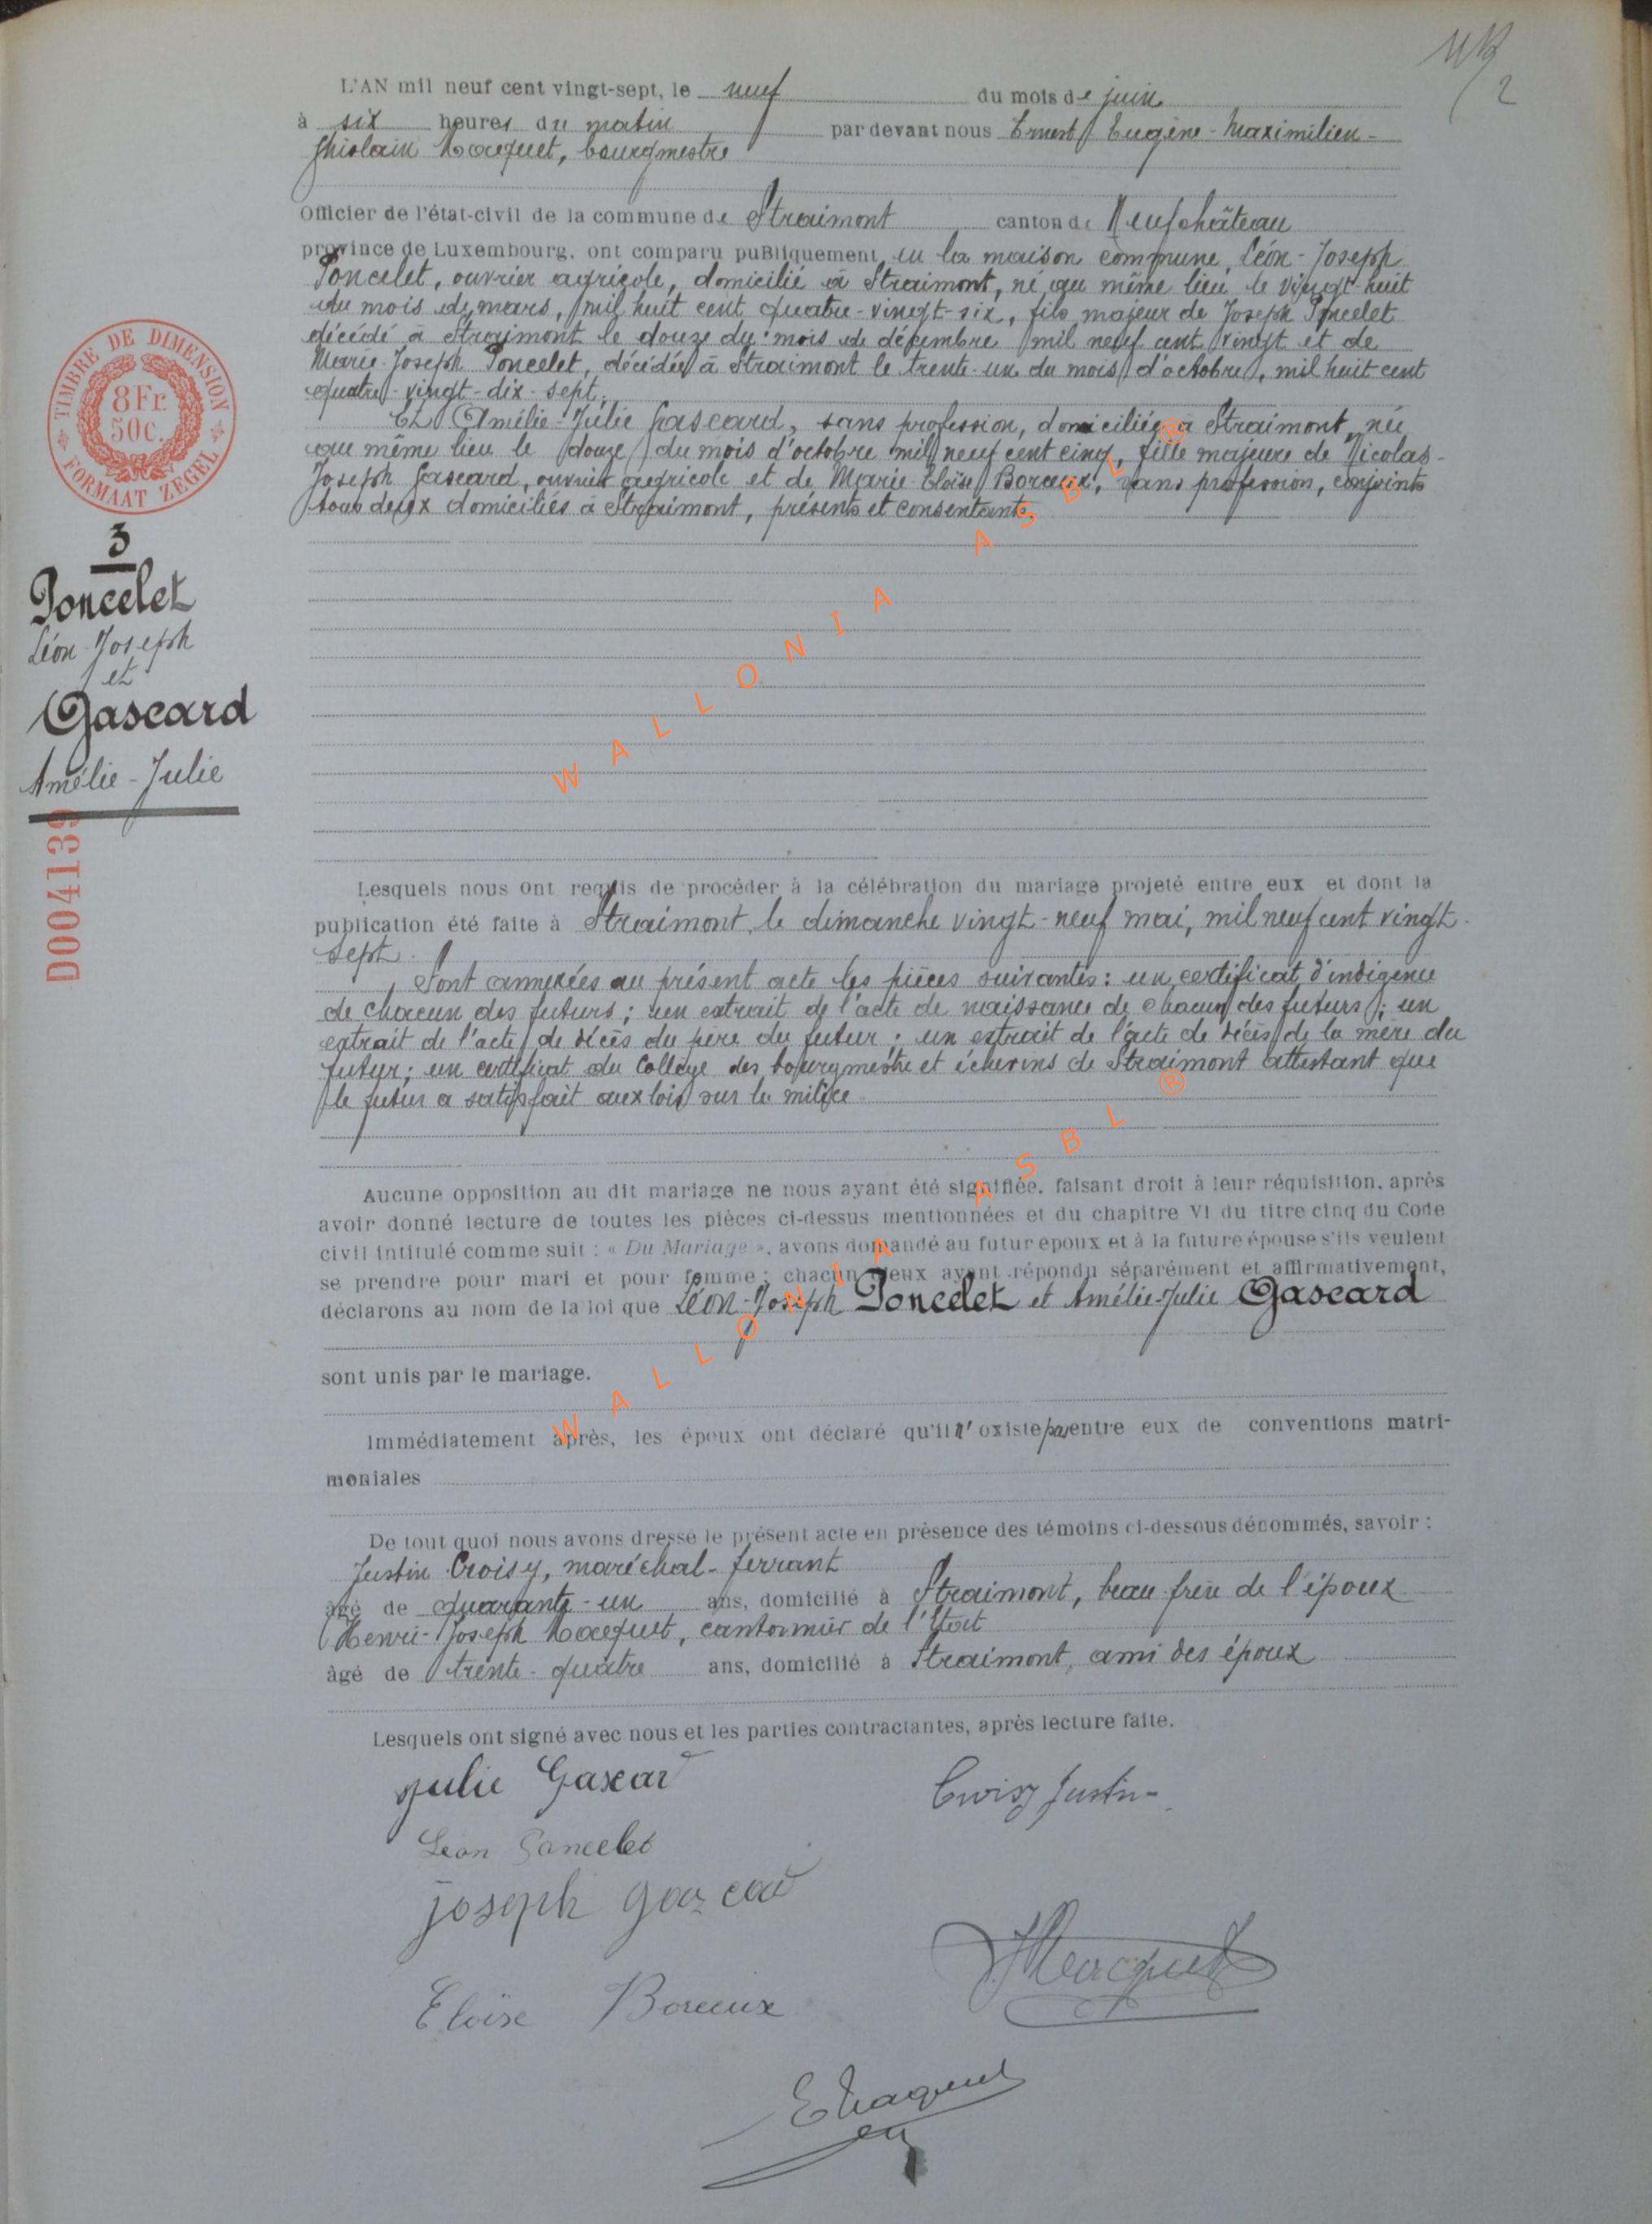 L'AN mil neuf cent vingt-sept, le neuf du mois de juin
à six heures du matin par devant nous Ernest Eugène-Maximilien-
Ghislain Hocquet, bourgmestre
Officier de l'état-civil de la commune de Straimont canton de Neufchâteau
province de Luxembourg, ont comparu publiquement en la maison commune, Léon-Joseph
Poncelet, ouvrier agricole, domicilié à Straimont, né au même lieu le vingt-huit
du mois de mars, mil huit cent quatre-vingt-six, fils majeur de Joseph Poncelet
décédé à Straimont le douze du mois de décembre mil neuf cent vingt et de
Marie-Joseph Poncelet, décédée à Straimont le trente-un du mois d'octobre, mil huit cent
quatre-vingt-dix-sept.
Et Amélie-Julie Gascard, sans profession, domiciliée à Straimont, née
au même lieu le douze du mois d'octobre mil neuf cent cinq, fille majeure de Nicolas-
Joseph Gascard, ouvrier agricole et de Marie-Eloïse Boreux, sans profession, conjoints
tous deux domiciliés à Straimont, présents et consentants.
TIMBRE DE DIMENSION
8Fr.
50c.
FORMAAT ZEGEL
3
Poncelet
Léon-Joseph
et
Gascard
Amélie-Julie
D004139
Lesquels nous ont requis de procéder à la célébration du mariage projeté entre eux et dont la
publication été faite à Straimont, le dimanche vingt-neuf mai, mil neuf cent vingt-
sept.
Sont annexées au présent acte les pièces suivantes: un certificat d'indigence
de chacun des futurs; un extrait de l'acte de naissance de chacun des futurs; un
extrait de l'acte de décès du père du futur; un extrait de l'acte de décès de la mère du
futur; un certificat du Collège des bourgmestre et échevins de Straimont attestant que
le futur a satisfait aux lois sur la milice
Aucune opposition au dit mariage ne nous ayant été signifiée, faisant droit à leur réquisition, après
avoir donné lecture de toutes les pièces ci-dessus mentionnées et du chapitre VI du titre cinq du Code
civil intitulé comme suit : « Du Mariage », avons demandé au futur epoux et à la future épouse s'ils veulent
se prendre pour mari et pour femme; chacun d'eux ayant répondu séparément et affirmativement,
déclarons au nom de la loi que Léon-Joseph Poncelet et Amélie-Julie Gascard
sont unis par le mariage.
Immédiatement après, les époux ont déclaré qu'il n'existe pas entre eux de conventions matri-
moniales
De tout quoi nous avons dressé le présent acte en présence des témoins ci-dessous dénommés, savoir :
Justin Croisy, maréchal-ferrant
âgé de quarante-un ans, domicilié à Straimont, beau frère de l'époux
Henri-Joseph Hocquet, cantonnier de l'Etat
âgé de trente-quatre ans, domicilié à Straimont, ami des époux
Lesquels ont signé avec nous et les parties contractantes, après lecture faite.
Julie Gascard
Croisy Justin
Léon Poncelet
joseph gazcard
Hocquet
Eloïse Boreux
E Hocquet
WALLONIA ASBL ®
WALLONIA ASBL ®